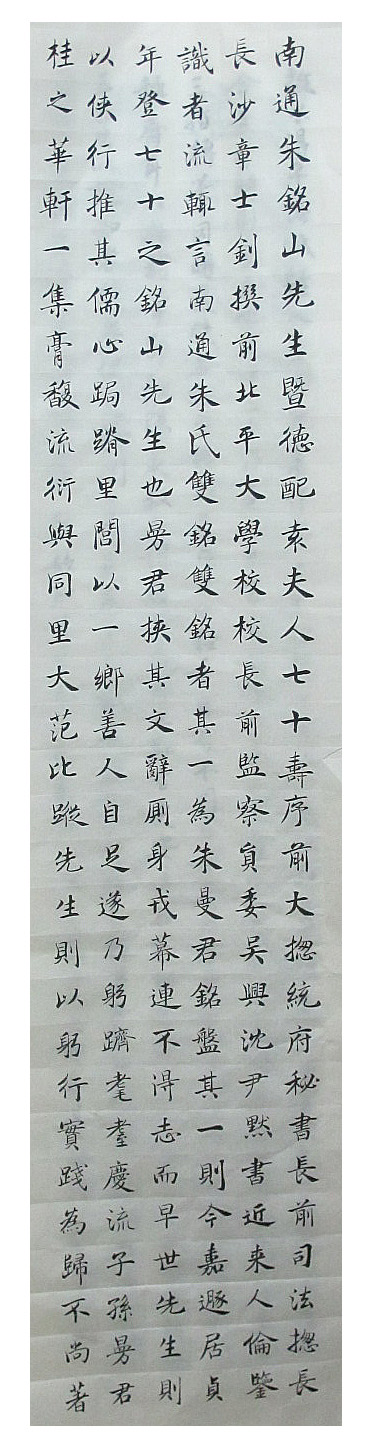 南通朱銘山先生暨德配袁夫人七十壽序前大捴統府秘書長前司法捴長
長沙章士釗撰前北平大學校校長前監察負委吴興沈尹默書近来人倫鑒
識者流輒言南通朱氏雙銘雙銘者其一為朱曼君銘盤其一則今嘉遯居貞
年登七十之銘山先生也曼君挾其文辭厠身戎幕連不得志而早世先生則
以俠行推其儒心跼蹐里閭以一鄉善人自足遂乃躬躋耄耋慶流子孫曼君
桂之華軒一集膏馥流衍與同里大范比蹤先生則以躬行實踐為歸不尚著